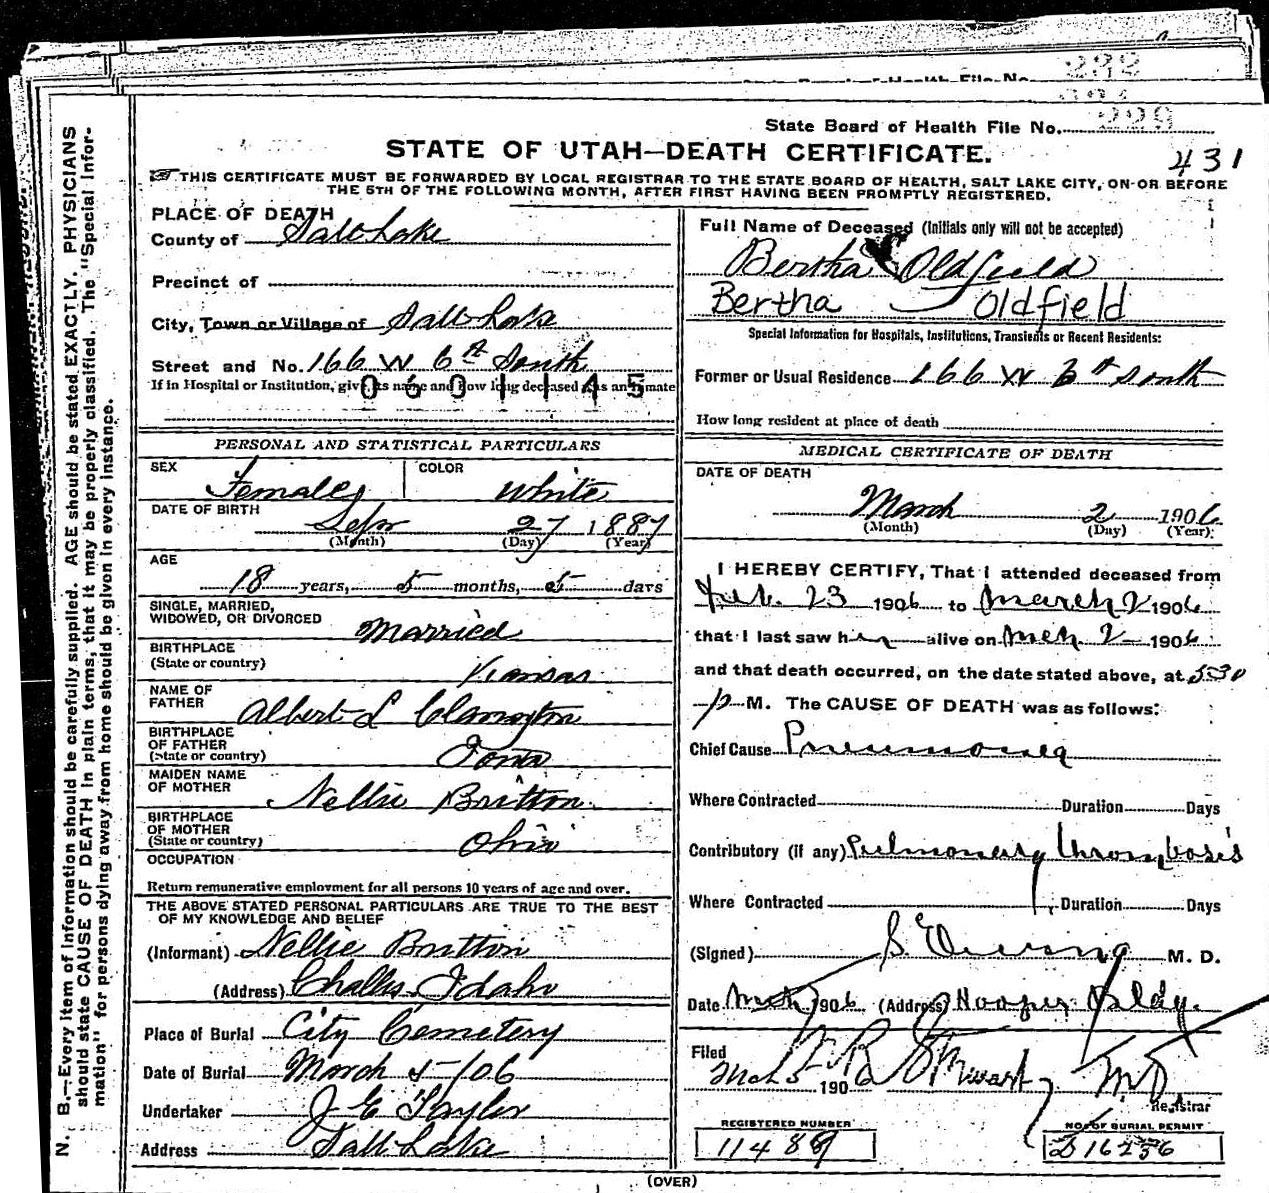 State Board of Health File No. 229
STATE OF UTAH—DEATH CERTIFICATE.
431
THIS CERTIFICATE MUST BE FORWARDED BY LOCAL REGISTRAR TO THE STATE BOARD OF HEALTH, SALT LAKE CITY, ON OR BEFORE
THE 5TH OF THE FOLLOWING MONTH, AFTER FIRST HAVING BEEN PROMPTLY REGISTERED.
PLACE OF DEATH
County of Salt Lake
Precinct of
City, Town or Village of Salt Lake
Street and No. 166 W 6th South
If in Hospital or Institution, give its name and how long deceased was an inmate
0601145
PERSONAL AND STATISTICAL PARTICULARS
SEX Female COLOR White
DATE OF BIRTH
Sep 27 1887
(Month) (Day) (Year)
AGE
18 years, 5 months, 5 days
SINGLE, MARRIED,
WIDOWED, OR DIVORCED Married
BIRTHPLACE
(State or country) Kansas
NAME OF
FATHER Albert L
BIRTHPLACE
OF FATHER
(State or country) Iowa
MAIDEN NAME
OF MOTHER Nellie Britton
BIRTHPLACE
OF MOTHER
(State or country) Ohio
OCCUPATION
Return remunerative employment for all persons 10 years of age and over.
THE ABOVE STATED PERSONAL PARTICULARS ARE TRUE TO THE BEST
OF MY KNOWLEDGE AND BELIEF
(Informant) Nellie Britton
(Address) Challis Idaho
Place of Burial City Cemetery
Date of Burial March 5-/06
Undertaker J E Taylor
Address Salt Lake
Full Name of Deceased (Initials only will not be accepted)
Bertha Oldfield
Bertha Oldfield
Special Information for Hospitals, Institutions, Transients or Recent Residents:
Former or Usual Residence 166 W 6th South
How long resident at place of death
MEDICAL CERTIFICATE OF DEATH
DATE OF DEATH
March 2 1906
(Month) (Day) (Year)
I HEREBY CERTIFY, That I attended deceased from
Feb. 23 1906 to March 2 1906
that I last saw her alive on Mch 2 1906
and that death occurred, on the date stated above, at 530
p M. The CAUSE OF DEATH was as follows:
Chief Cause Pneumonia
Where Contracted Duration Days
Contributory (if any) Pulmonary thrombosis
Where Contracted Duration Days
(Signed) S. Ewing M. D.
Date 1906 (Address) Hooper Bldg.
Filed
Mch 5 1906 Stewart MD
Registrar
REGISTERED NUMBER
11489
NO. OF BURIAL PERMIT
D16256
(OVER)
N. B.—Every item of information should be carefully supplied. AGE should be stated EXACTLY. PHYSICIANS
should state CAUSE OF DEATH in plain terms, that it may be properly classified. The "Special Infor-
mation" for persons dying away from home should be given in every instance.